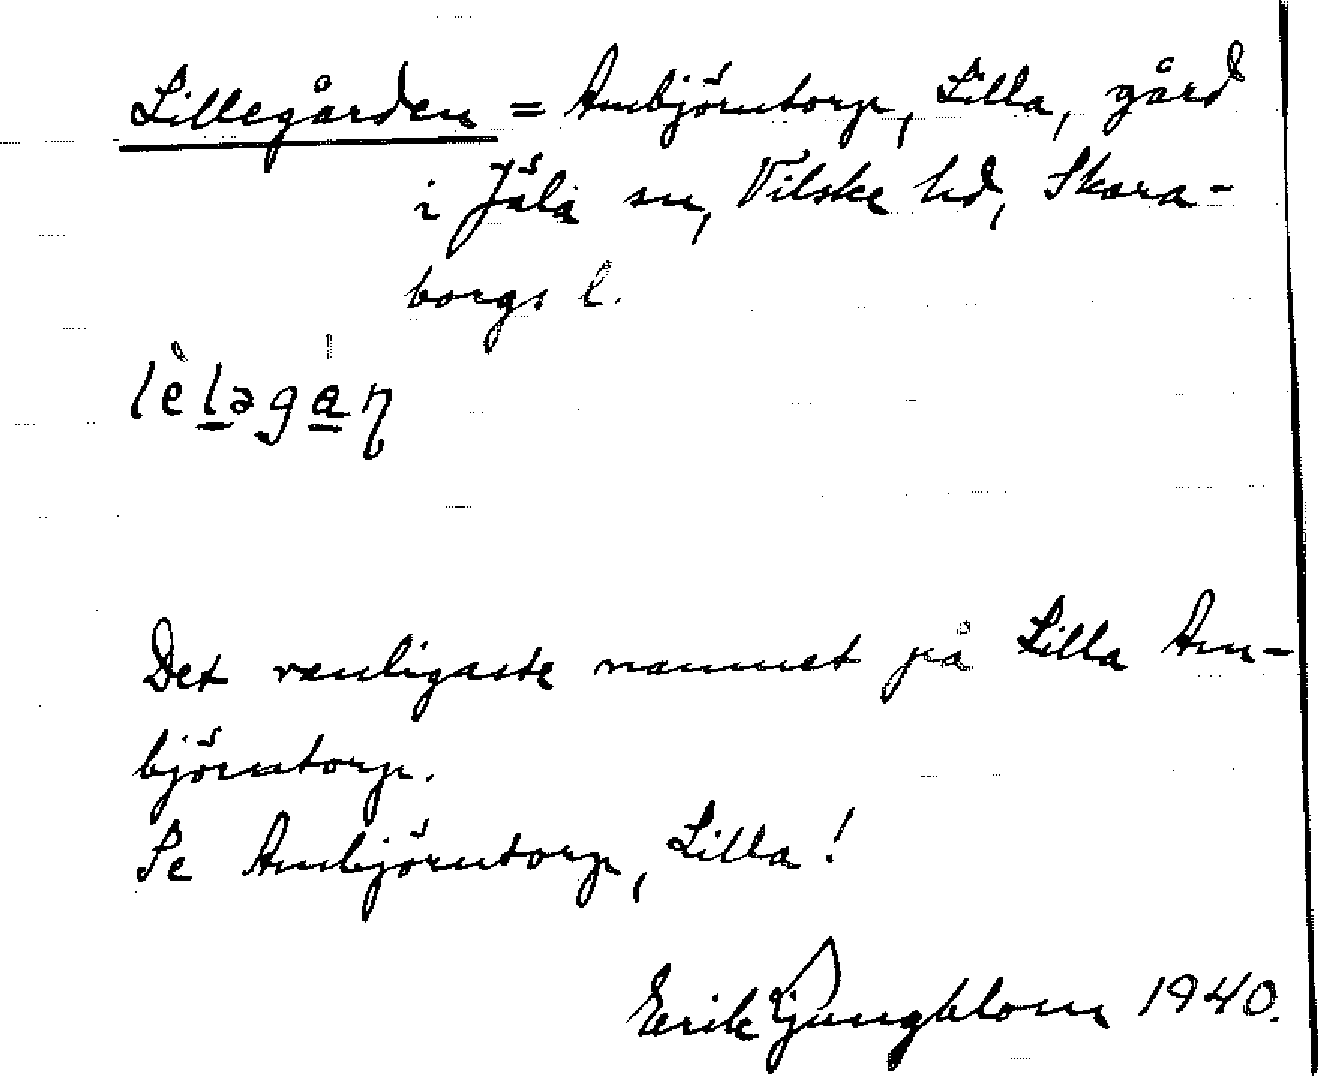 Lillegården = Ambjörntorp, Lilla, gård
i Jäla sn, Vilske hd, Skara-
borgs l.
lèləgán
Det vanligaste namnet på Lilla Am-
björntorp.
Se Ambjörntorp, Lilla!
Erik Ljungblom 1940.